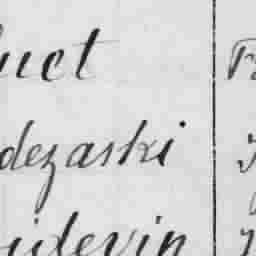 uct
dezaski
idevin